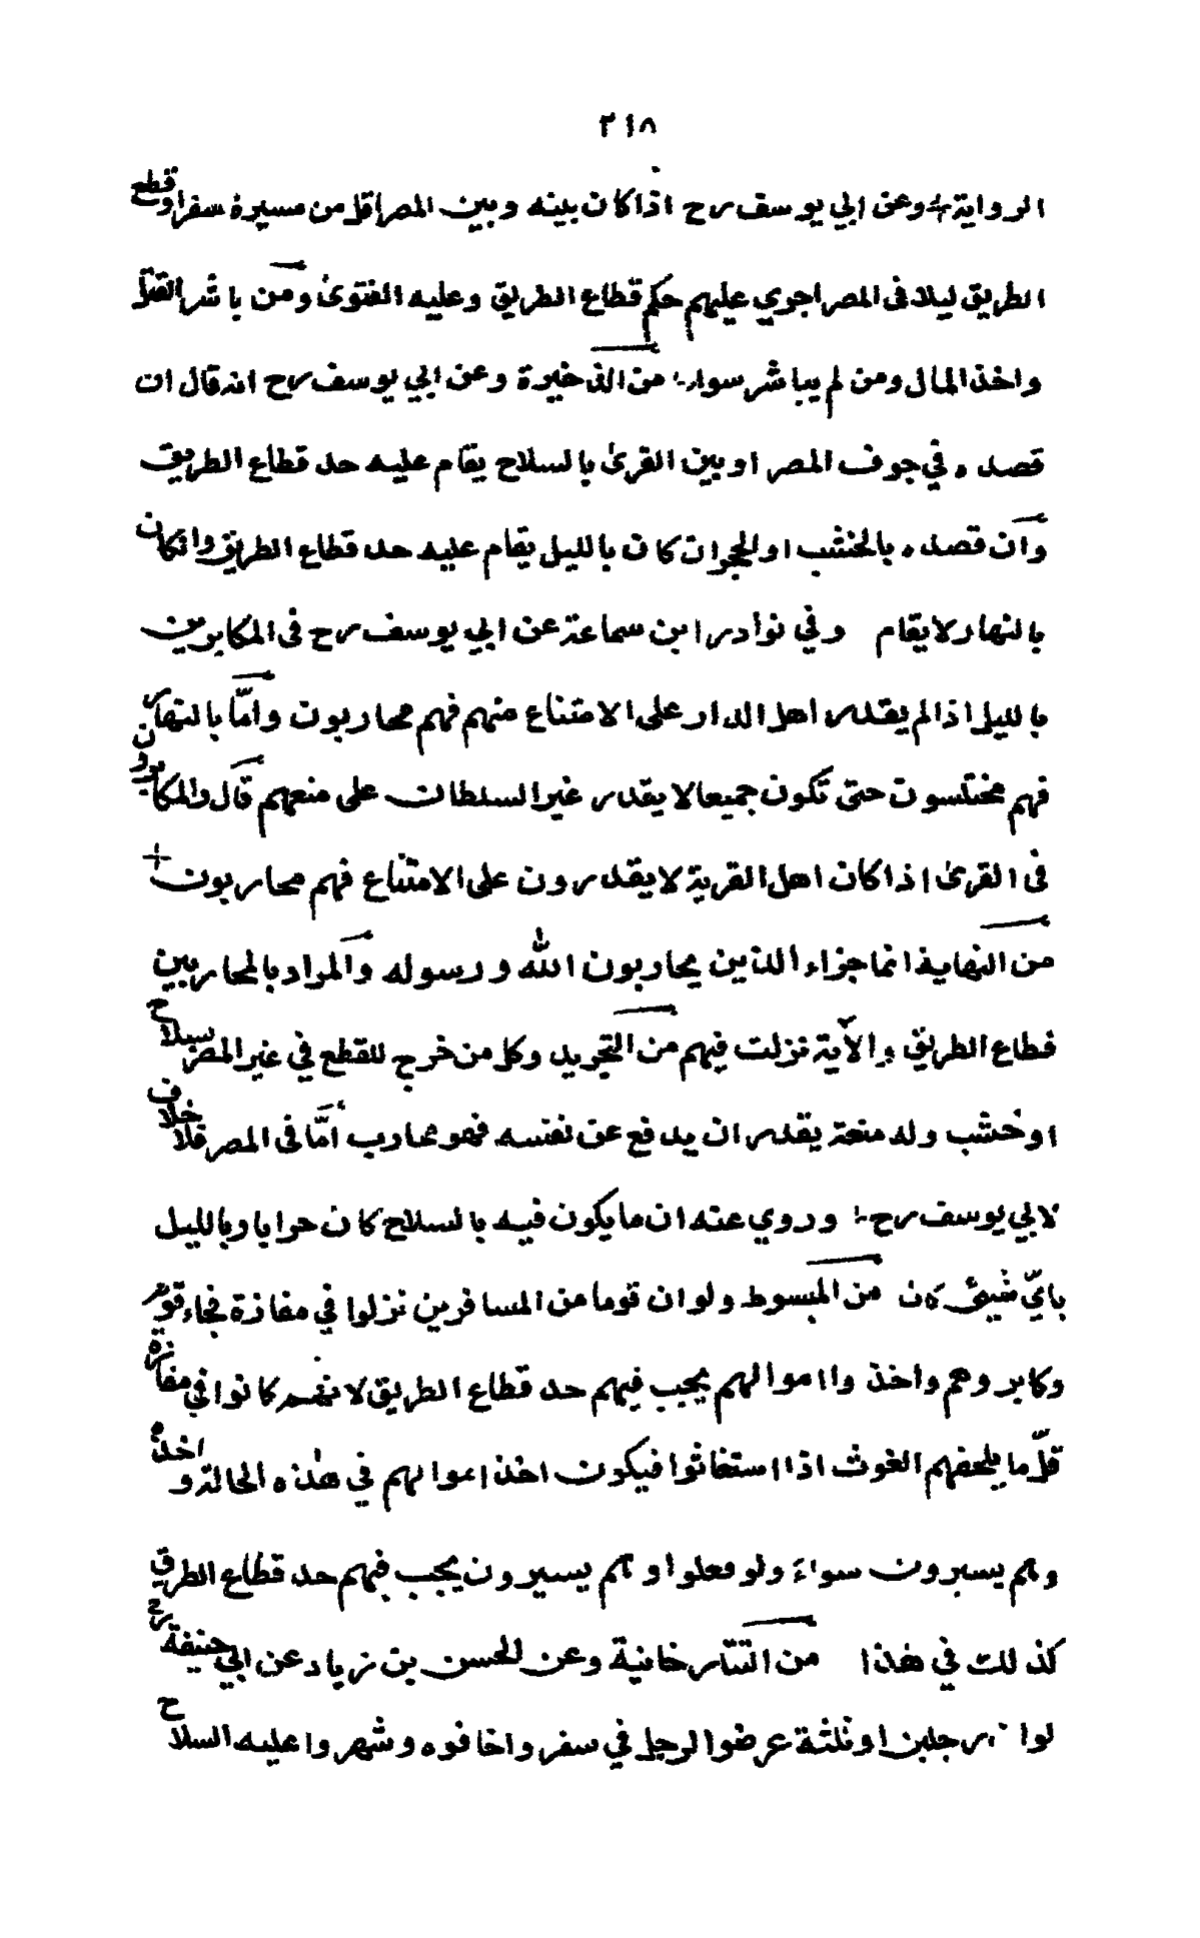 ٢١٨
الرواية وعن ابي يوسف رح اذا كان بينه وبين المصر اقل من مسيرة سفر او قطع
الطريق ليلا فى المصر اجري عليهم حكم قطاع الطريق وعليه الفتوى ومن باشر القتل
واخذ المال ومن لم يباشر سواء من الذخيرة وعن ابي يوسف رح انه قال ان
قصده في جوف المصر او بين القرى بالسلاح يقام عليه حد قطاع الطريق
وان قصده بالخشب او الحجر ان كان بالليل يقام عليه حد قطاع الطريق وانكان
بالنهار لا يقام وفي نوادر ابن سماعة عن ابي يوسف رح فى المكابرين
بالليل اذا لم يقدر اهل الدار على الامتناع منهم فهم محاربون واما بالنهار
فهم مختلسون حتى تكون جميعا لا يقدر غير السلطان على منعهم قال والمكابرون
فى القرى اذا كان اهل القرية لا يقدرون على الامتناع فهم محاربون
من النهاية انما جزاء الذين يحاربون الله ورسوله والمراد بالمحاربين
قطاع الطريق والآية نزلت فيهم من التجريد وكل من خرج للقطع في غير المصر بسلاح
او خشب وله منعة يقدر ان يدفع عن نفسه فهو محارب أمّا فى المصر فلا خلاف
لابي يوسف رح وروي عنه ان ما يكون فيه بالسلاح كان حرابا وبالليل
بايّ شيئ كان من المبسوط ولو ان قوما من المسافرين نزلوا في مفازة فجاء قوم
وكابروهم واخذوا اموالهم يجب فيهم حد قطاع الطريق لانهم كانوا في مفازة
قلّ ما يلحقهم الغوث اذا استغاثوا فيكون اخذ اموالهم في هذه الحالة واخذه
وهم يسيرون سواء ولو فعلوا وهم يسيرون يجب فيهم حد قطاع الطريق
كذلك في هذا من التتارخانية وعن الحسن بن زياد عن ابي حنيفة رح
لو ان رجلين او ثلثة عرضوا لرجل في سفر واخافوه وشهروا عليه السلاح